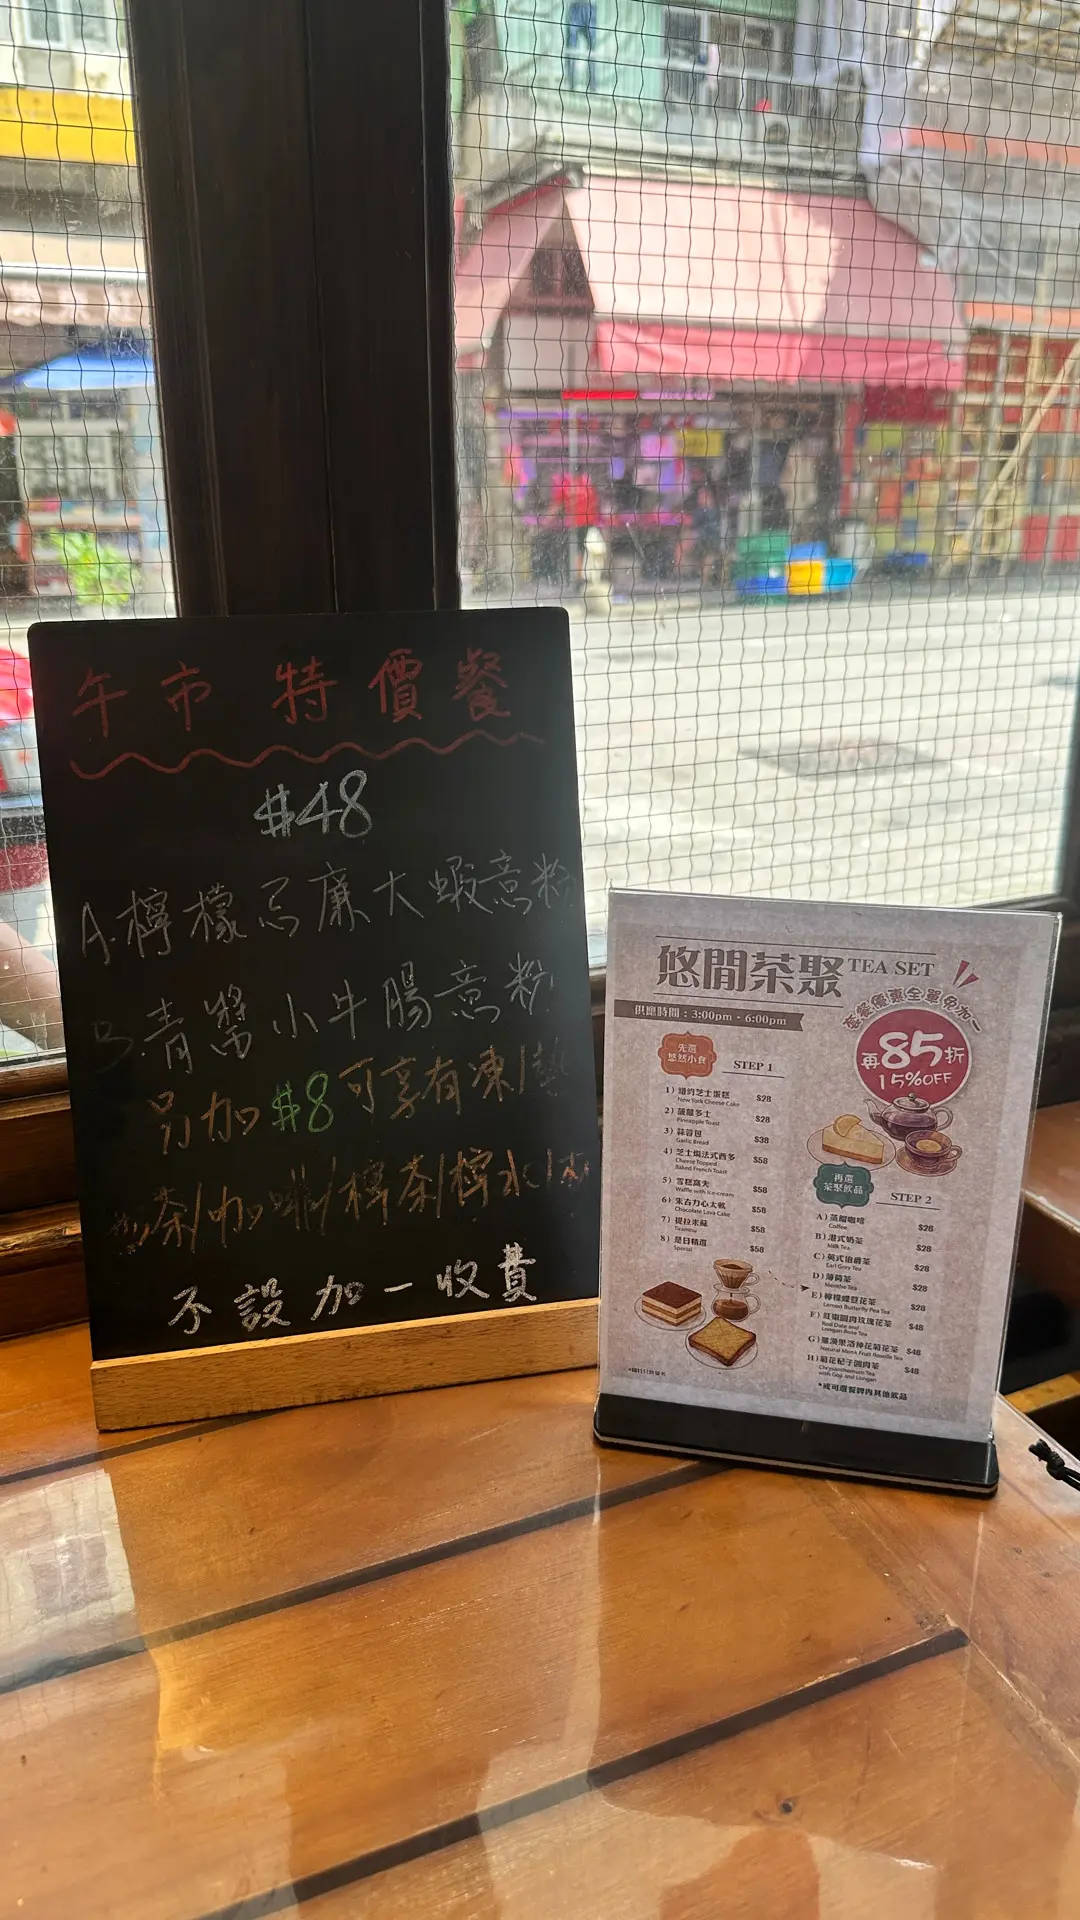 午市 特價餐
$48
A.檸檬忌廉大蝦意粉
B.青醬小牛腸意粉
另加$8可享有凍/熱
茶/咖啡/檸茶/檸水/
不設加一收費
悠閒茶聚 TEA SET
供應時間：3:00pm - 6:00pm
套餐優惠全單免加一
再85折
15%OFF
先選
悠然小食
STEP 1
1) 紐約芝士蛋糕 $28
New York Cheese Cake
2) 菠蘿多士 $28
Pineapple Toast
3) 蒜蓉包 $38
Garlic Bread
4) 芝士焗法式西多 $58
Cheese Topped
Baked French Toast
5) 雪糕窩夫 $58
Waffle with Ice-cream
6) 朱古力心太軟 $58
Chocolate Lava Cake
7) 提拉米蘇 $58
Tiramisu
8) 是日精選 $58
Special
再選
茶聚飲品
STEP 2
A) 蒸餾咖啡 $28
Coffee
B) 港式奶茶 $28
Milk Tea
C) 英式伯爵茶 $28
Earl Grey Tea
D) 薄荷茶 $28
Menthe Tea
E) 檸檬蝶荳花茶 $28
Lemon Butterfly Pea Tea
F) 紅棗圓肉玫瑰花茶 $48
Red Date and
Longan Rose Tea
G) 羅漢果洛神花菊花茶 $48
Natural Monk Fruit Roselle Tea
H) 菊花杞子圓肉茶 $48
Chrysanthemum Tea
with Goji and Longan
*或可選餐牌內其他飲品